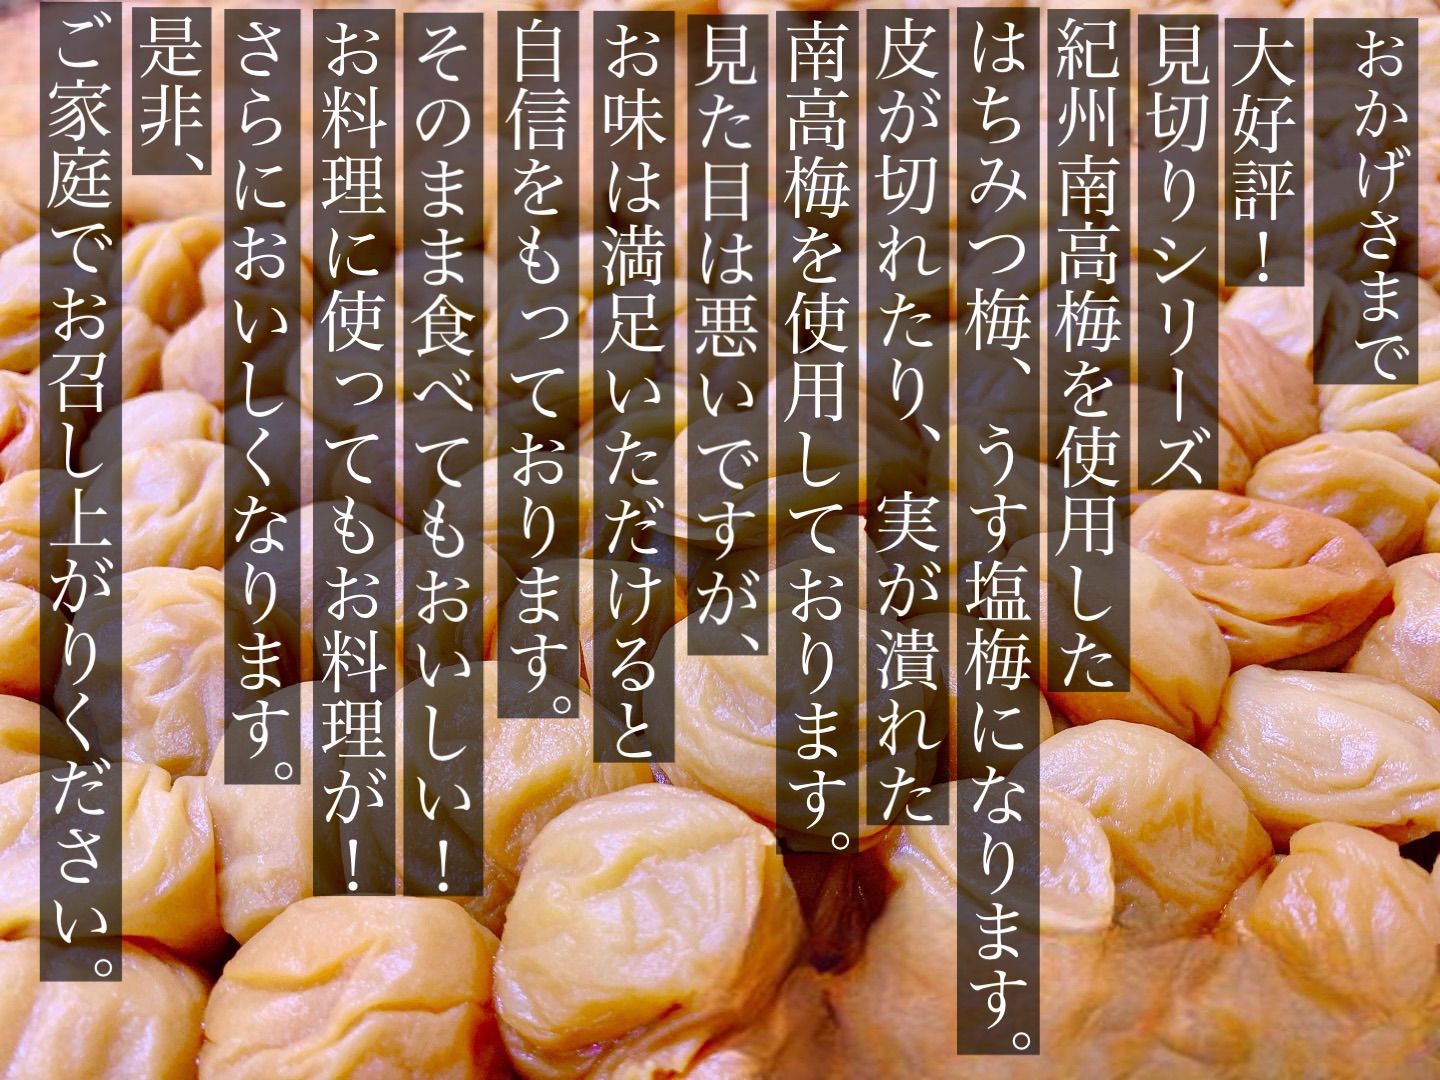 おかげさまで
大好評！
見切りシリーズ
紀州南高梅を使用した
はちみつ梅、うす塩梅になります。
皮が切れたり、実が潰れた
南高梅を使用しております。
見た目は悪いですが、
お味は満足いただけると
自信をもっております。
そのまま食べてもおいしい！
お料理に使ってもお料理が！
さらにおいしくなります。
是非、
ご家庭でお召し上がりください。